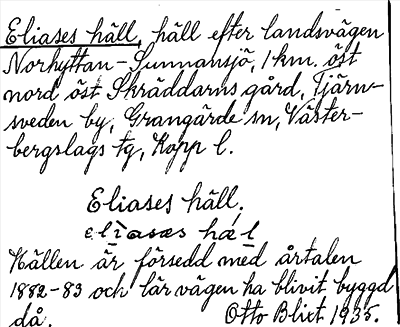 Eliases häll, häll efter landsvägen
Norhyttan-Sunnansjö, 1 km. öst
nord öst Skräddarns gård, Tjärn-
sveden by, Grangärde sn, Väster-
bergslags tg, Kopp l.
Eliases häll.
eliasæs hæl
Hällen är försedd med årtalen
1882-83 och lär vägen ha blivit byggd
då. Otto Blixt 1935.